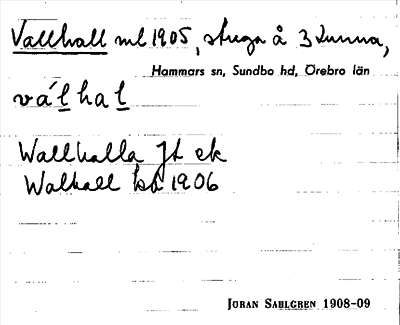 Vallhall ml 1905, stuga å 3 Lunna,
Hammars sn, Sundbo hd, Örebro län
vá́lhal
Wallhalla Jt ek
Walhall kb 1906
JÖRAN SAHLGREN 1908-09